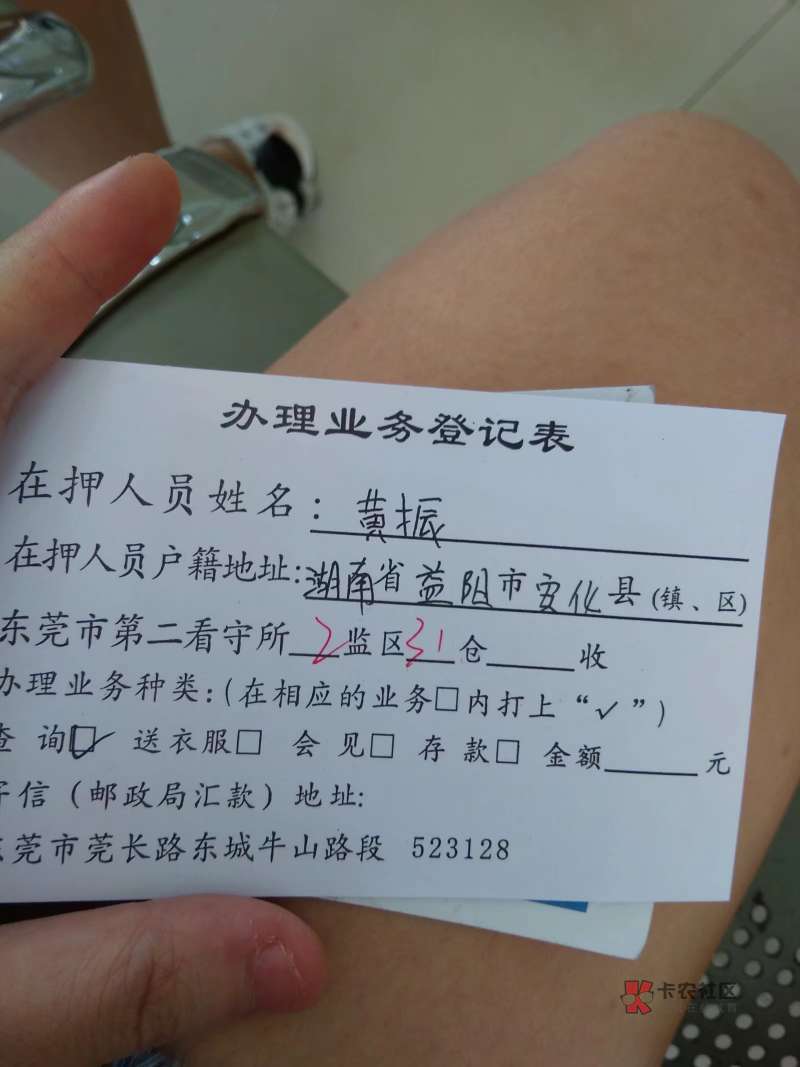 办理业务登记表
在押人员姓名：黄振
在押人员户籍地址:湖南省益阳市安化县(镇、区)
东莞市第二看守所2监区31仓____收
办理业务种类:(在相应的业务□内打上“✓”)
查 询☑ 送衣服□ 会 见□ 存 款□ 金额____元
信（邮政局汇款）地址:
东莞市莞长路东城牛山路段 523128
卡农社区